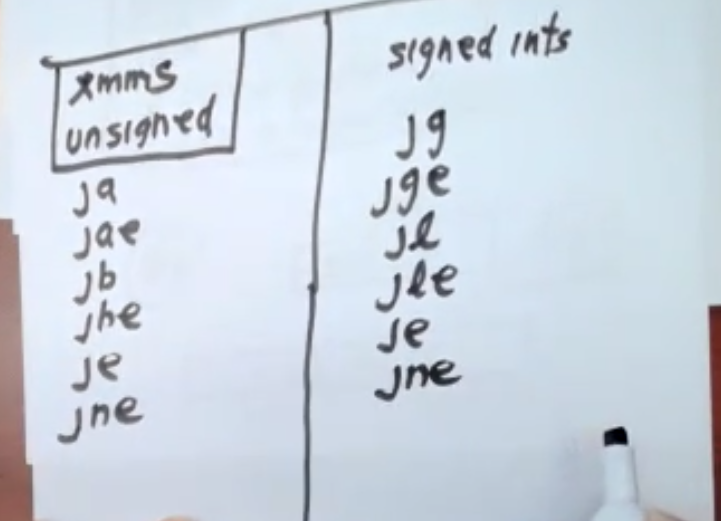 xmms
unsigned
ja
jae
jb
jbe
je
jne
signed ints
jg
jge
jl
jle
je
jne